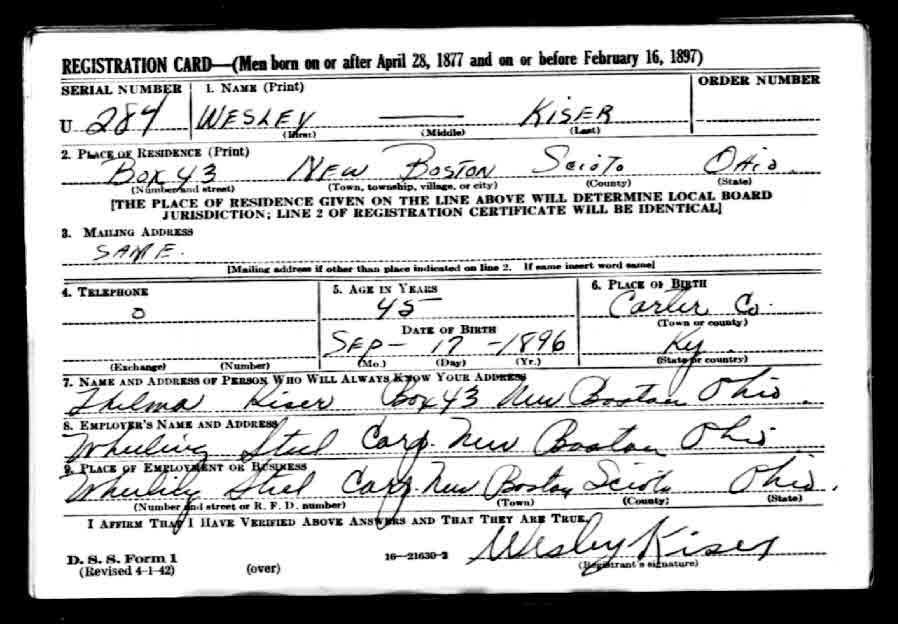 REGISTRATION CARD—(Men born on or after April 28, 1877 and on or before February 16, 1897)
SERIAL NUMBER 1. NAME (Print) ORDER NUMBER
U 284 WESLEY — KISER
(First) (Middle) (Last)
2. PLACE OF RESIDENCE (Print)
BOX 43 NEW BOSTON SCIOTO OHIO.
(Number and street) (Town, township, village, or city) (County) (State)
[THE PLACE OF RESIDENCE GIVEN ON THE LINE ABOVE WILL DETERMINE LOCAL BOARD
JURISDICTION; LINE 2 OF REGISTRATION CERTIFICATE WILL BE IDENTICAL]
3. MAILING ADDRESS
SAME.
[Mailing address if other than place indicated on line 2. If same insert word same]
4. TELEPHONE 5. AGE IN YEARS 6. PLACE OF BIRTH
0 45 Carter Co.
DATE OF BIRTH (Town or county)
SEP - 17 - 1896 Ky.
(Exchange) (Number) (Mo.) (Day) (Yr.) (State or country)
7. NAME AND ADDRESS OF PERSON WHO WILL ALWAYS KNOW YOUR ADDRESS
Thelma Kiser Box 43 New Boston Ohio.
8. EMPLOYER'S NAME AND ADDRESS
Wheeling Steel Corp. New Boston Ohio
9. PLACE OF EMPLOYMENT OR BUSINESS
Wheeling Steel Corp New Boston Scioto Ohio.
(Number and street or R. F. D. number) (Town) (County) (State)
I AFFIRM THAT I HAVE VERIFIED ABOVE ANSWERS AND THAT THEY ARE TRUE.
D. S. S. Form 1
(Revised 4-1-42) (over) 16—21630-2 Wesley Kiser
(Registrant's signature)